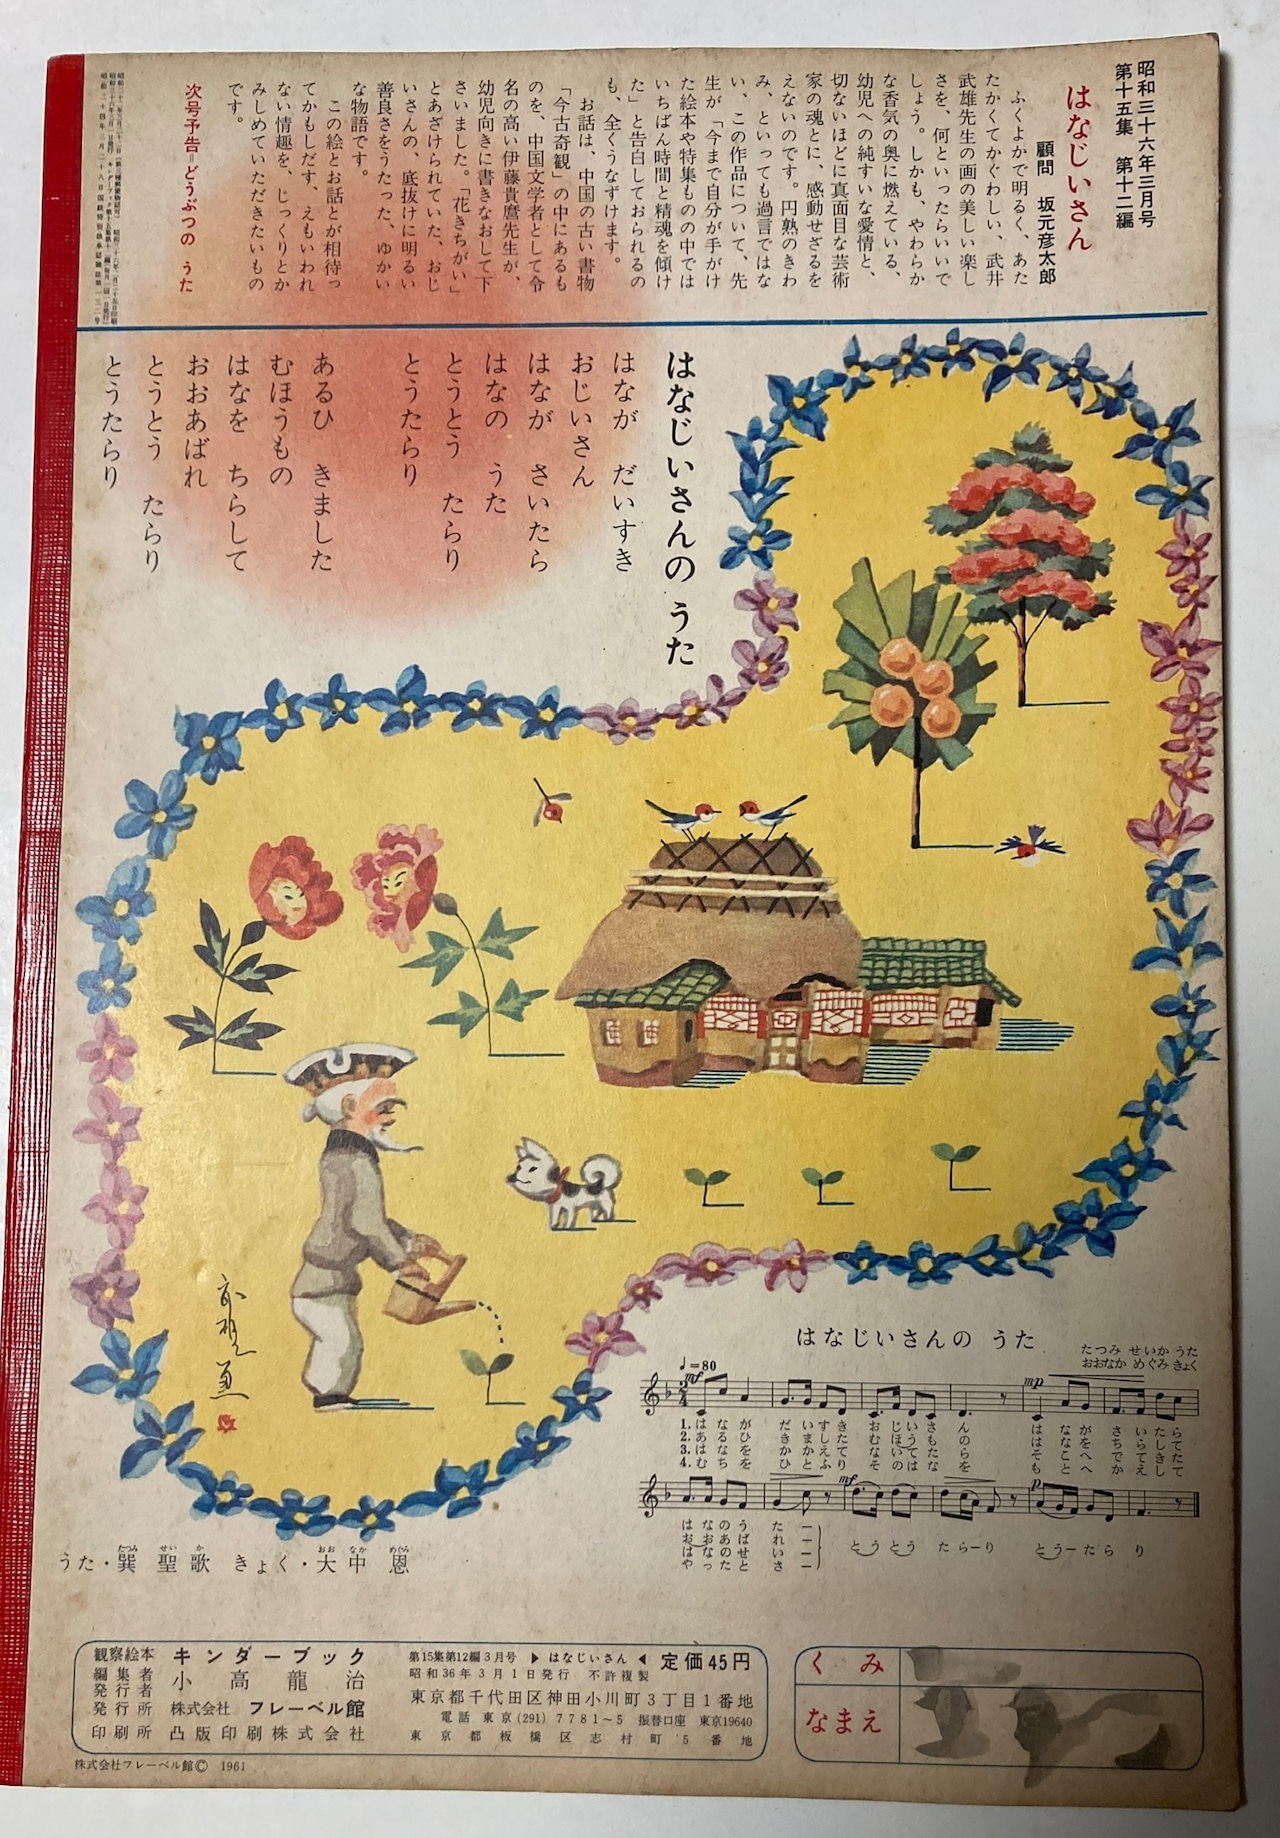 昭和三十六年三月号
第十五集　第十二編
はなじいさん
顧問　坂元彦太郎
ふくよかで明るく、あた
たかくてかぐわしい、武井
武雄先生の画の美しい楽し
さを、何といったらいいで
しょう。しかも、やわらか
な香気の奥に燃えている、
幼児への純すいな愛情と、
切ないほどに真面目な芸術
家の魂とに、感動せざるを
えないのです。円熟のきわ
み、といっても過言ではな
い、この作品について、先
生が「今まで自分が手がけ
た絵本や特集もの中では
いちばん時間と精魂を傾け
た」と告白しておられるの
も、全くうなずけます。
お話は、中国の古い書物
「今古奇観」の中にあるも
のを、中国文学者として令
名の高い伊藤貴麿先生が、
幼児向きに書きなおして下
さいました。「花きちがい」
とあざけられていた、おじ
いさんの、底抜けに明るい
善良さをうたった、ゆかい
な物語です。
この絵とお話とが相待っ
てかもしだす、えもいわれ
ない情趣を、じっくりとか
みしめていただきたいもの
です。
次号予告＝どうぶつの　うた
はなじいさんの　うた
はなが　だいすき
おじいさん
はなが　さいたら
はなの　うた
とうとう　たらり
とうたらり
あるひ　きました
むほうもの
はなを　ちらして
おおあばれ
とうとう　たらり
とうたらり
はなじいさんの　うた
たつみ せいか うた
おおなか めぐみ きょく
♩=80
mf
mp
1. はなが だいすき おじいさん はなが さいたら
2. あるひ きました
3. は
4. む
mf
p
とうとう たらーり とうーたらり
うた・巽　聖歌　きょく・大中　恩
たつみ　せいか　おおなか　めぐみ
観察絵本　キンダーブック
編集者
発行者　小高龍治
発行所　株式会社　フレーベル館
印刷所　凸版印刷株式会社
第15集第12編3月号　▶はなじいさん◀　定価45円
昭和36年3月1日発行　不許複製
東京都千代田区神田小川町3丁目1番地
電話　東京(291)7781～5　振替口座　東京19640
東京都板橋区志村町5番地
くみ
なまえ
株式会社フレーベル館©　1961